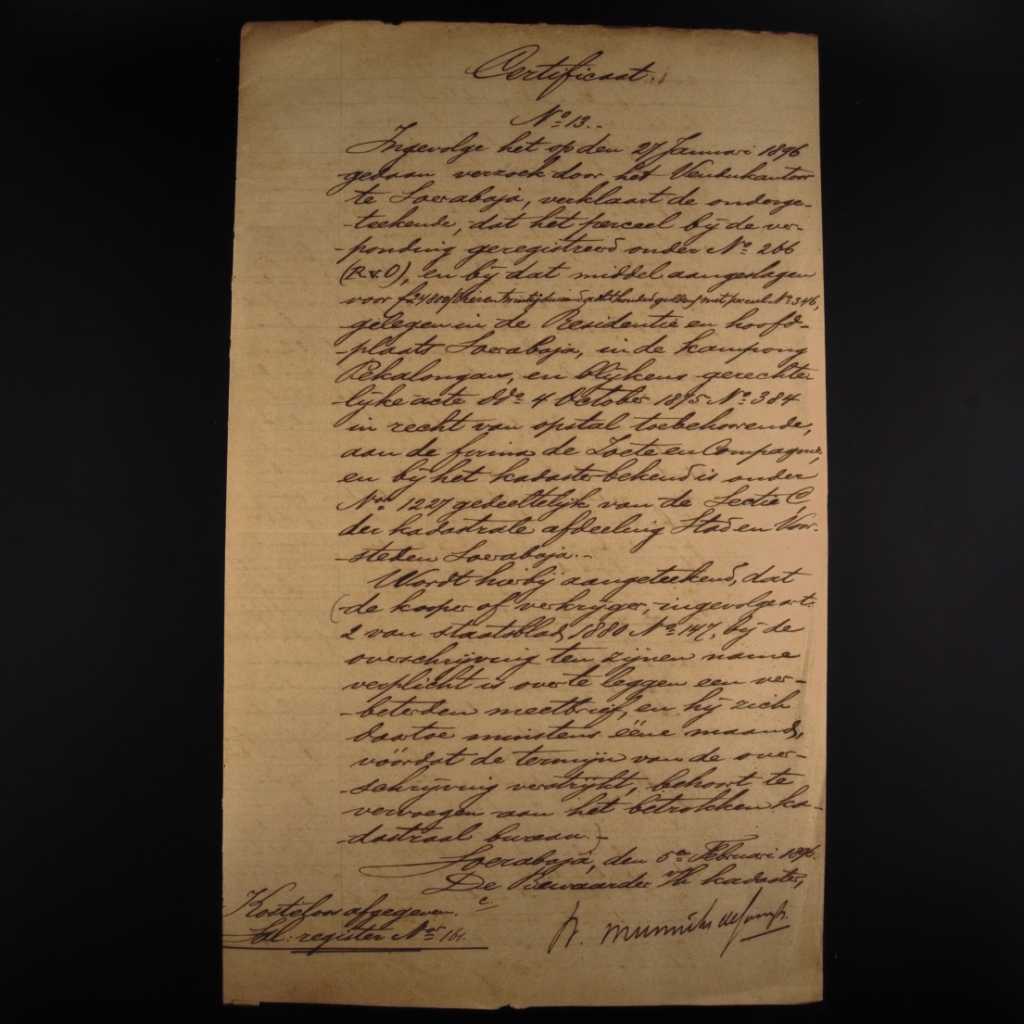 Certificaat.
No 13.
Ingevolge het op den 27 Januari 1896
gedaan verzoek door het Vendukantoor
te Soerabaja, verklaart de onderge-
-teekende, dat het perceel bij de ver-
-ponding geregistreerd onder No 266
(R.v.O), en bij dat middel aangeslagen
voor f 24800/ vierentwintigduizend achthonderd gulden/ met perceel No 346,
gelegen in de Residentie en hoofd-
-plaats Soerabaja, in de kampong
Pekalongan, en blijkens gerechte-
lijke acte ddo 4 October 1895 No 384
in recht van opstal toebehoorende,
aan de firma de en Compagnie,
en bij het kadaster bekend is onder
No 1227 gedeeltelijk van de Sectie C
der kadastrale afdeeling Stad en Voor-
-steden Soerabaja.-
Wordt hierbij aangeteekend, dat
(de kooper of verkrijger, ingevolge art:
2 van staatsblad 1880 No 147, bij de
overschrijving ten zijnen name
verplicht is over te leggen een ver-
-beterden meetbrief, en hij zich
daartoe minstens ééne maand,
vóórdat de termijn van de over-
-schrijving verstrijkt, behoort te
vervoegen aan het betrokken ka-
-dastraal bureau.)-
Soerabaja, den 6en Februari 1896.
De Bewaarder v/h kadaster,
Kosteloos afgegeven.
Sol: register No 161.